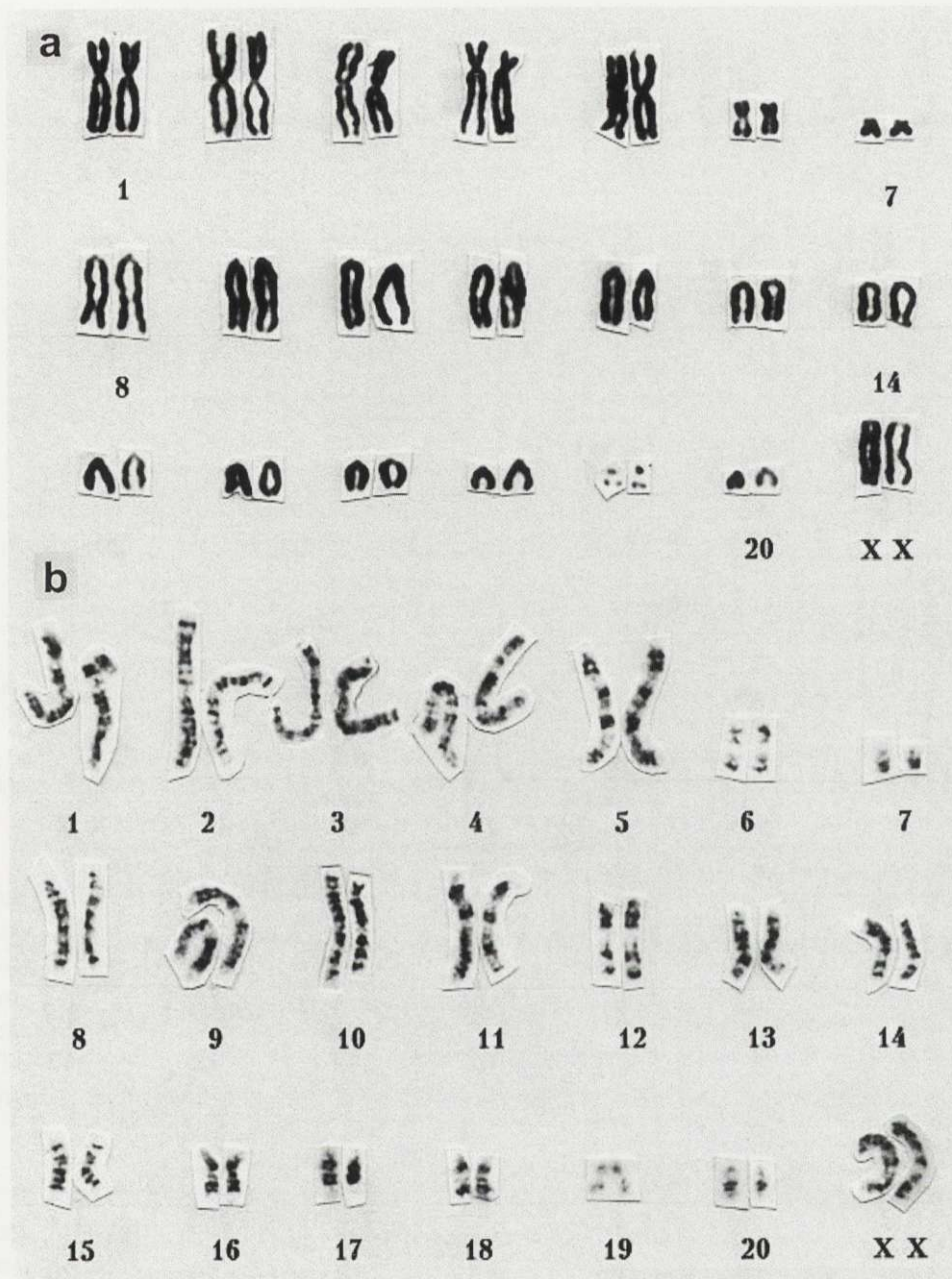 a
1 7
8 14
20 X X
b
1 2 3 4 5 6 7
8 9 10 11 12 13 14
15 16 17 18 19 20 X X